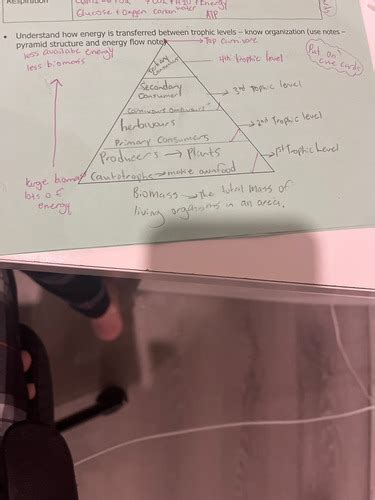 Respiration
Glucose + Oxygen
ATP
• Understand how energy is transferred between trophic levels – know organization (use notes –
pyramid structure and energy flow notes)
less available energy
less biomass
Top Carnivore
Put on
cue cards
4th trophic level
Secondary
Consumer
3rd trophic level
herbivours
2nd Trophic level
Primary Consumers
Producers → Plants
1st Trophic Level
large biomass
lots of
energy
(autotrophs → make own food
Biomass → the total mass of
living organisms in an area.